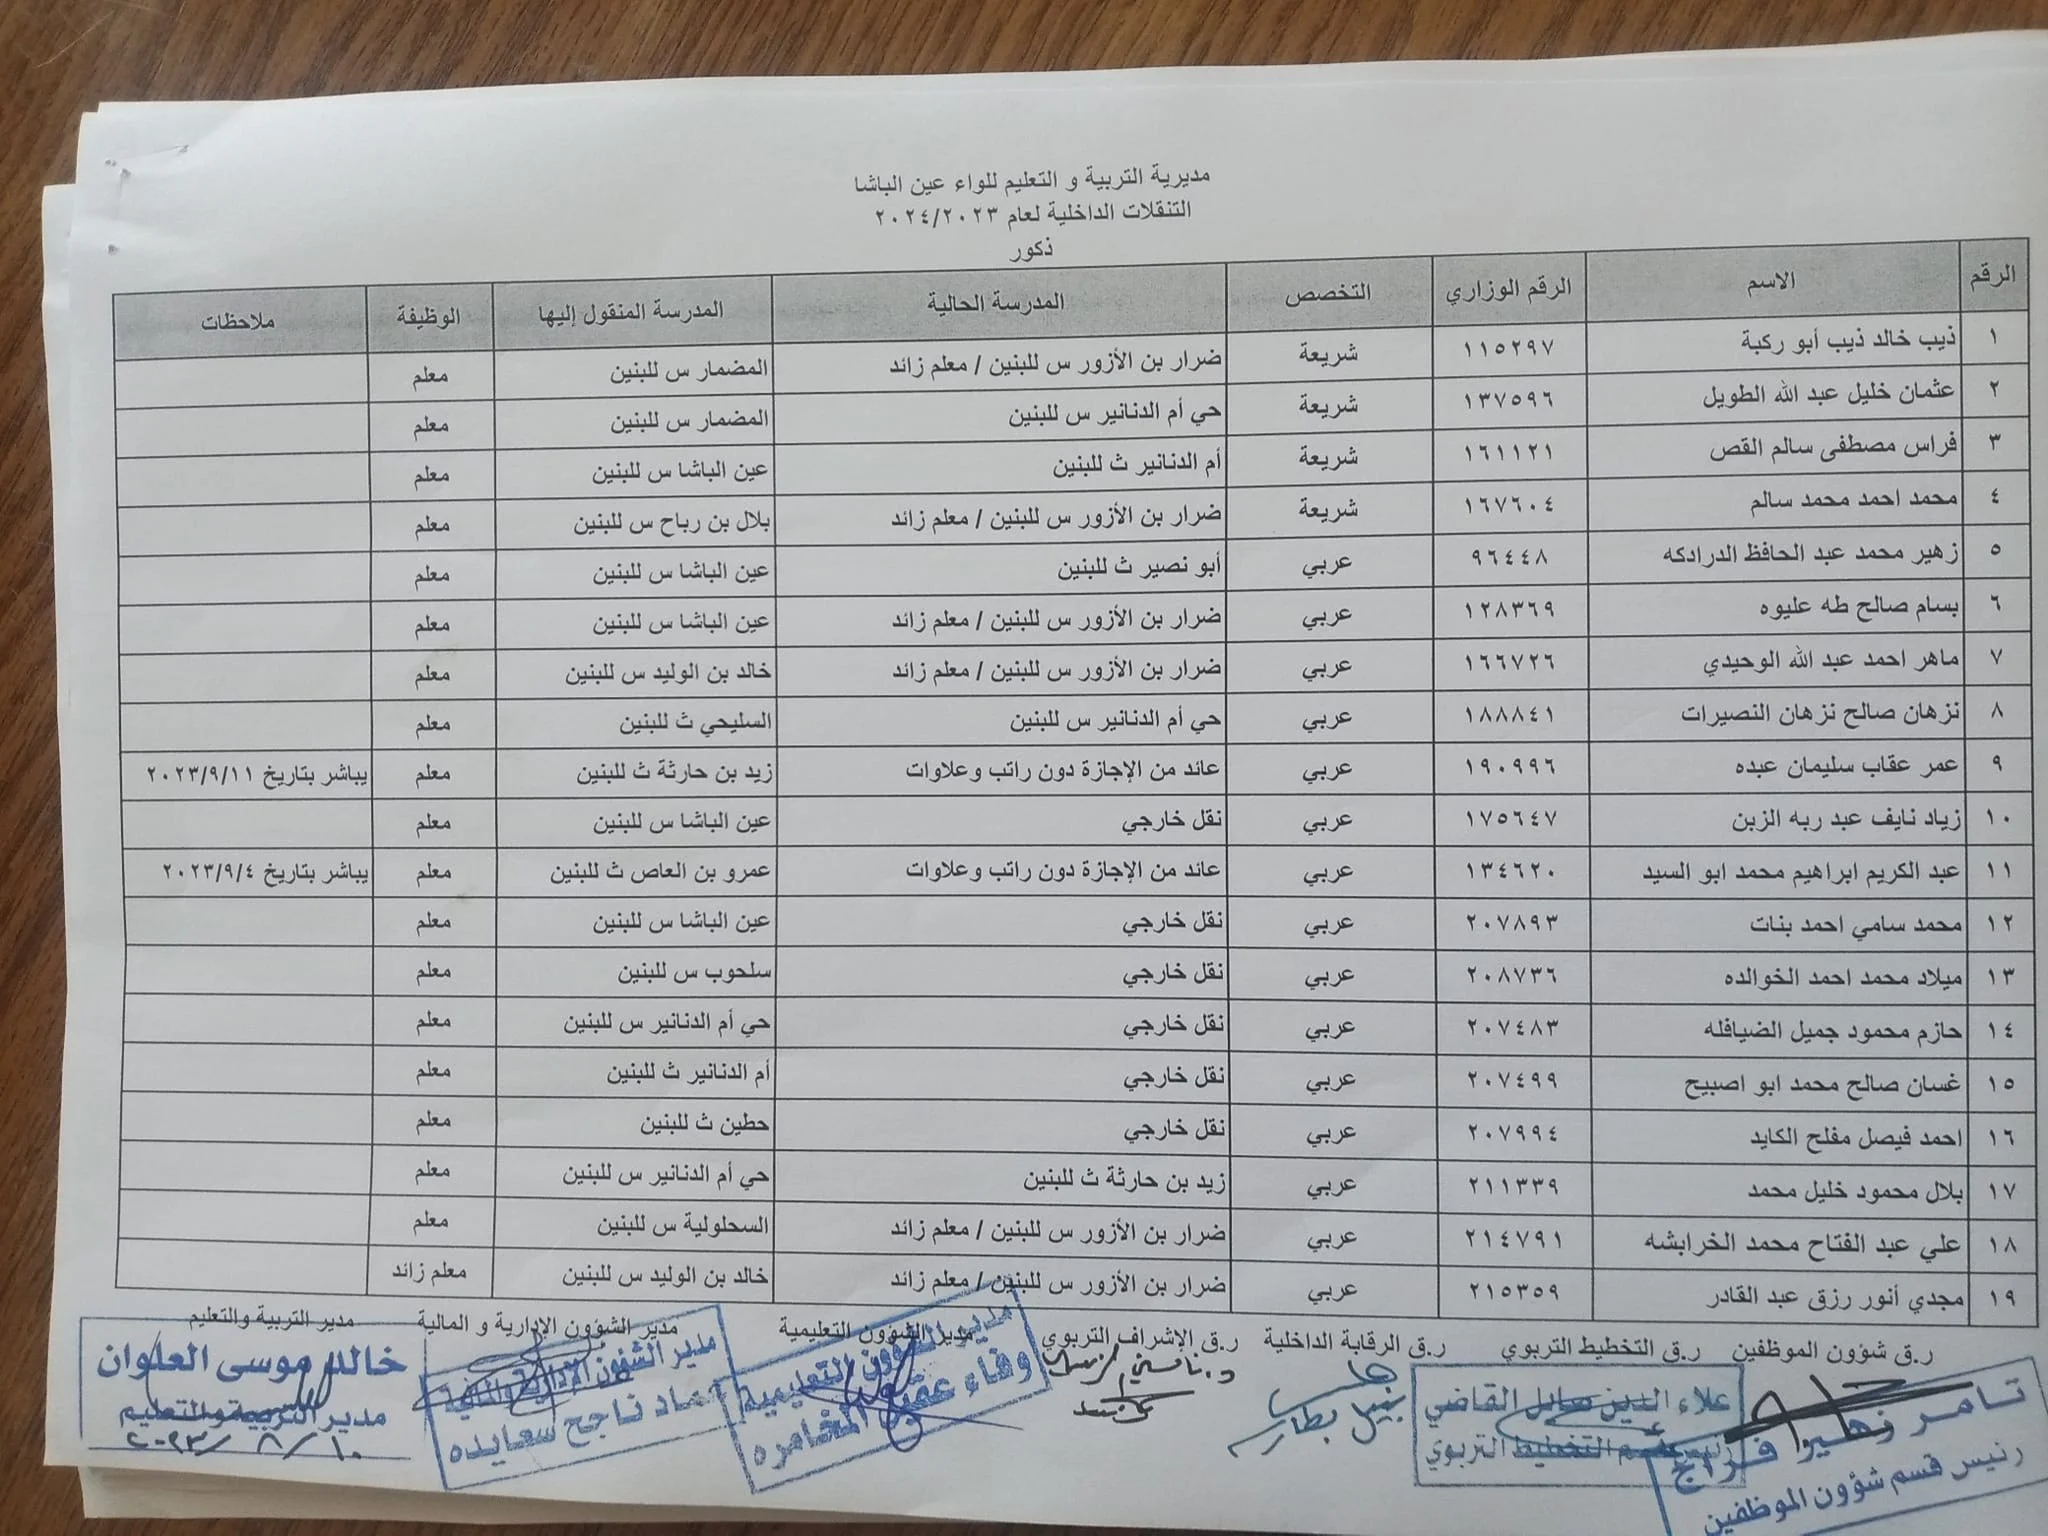 مديرية التربية و التعليم للواء عين الباشا
التنقلات الداخلية لعام ٢٠٢٤/٢٠٢٣
ذكور
الرقم الاسم الرقم الوزاري التخصص المدرسة الحالية المدرسة المنقول إليها الوظيفة ملاحظات
١ ذيب خالد ذيب أبو ركبة ١١٥٢٩٧ شريعة ضرار بن الأزور س للبنين / معلم زائد المضمار س للبنين معلم
٢ عثمان خليل عبد الله الطويل ١٣٧٥٩٦ شريعة حي أم الدنانير س للبنين المضمار س للبنين معلم
٣ فراس مصطفى سالم القص ١٦١١٢١ شريعة أم الدنانير ث للبنين عين الباشا س للبنين معلم
٤ محمد احمد محمد سالم ١٦٧٦٠٤ شريعة ضرار بن الأزور س للبنين / معلم زائد بلال بن رباح س للبنين معلم
٥ زهير محمد عبد الحافظ الدرادكه ٩٦٤٤٨ عربي أبو نصير ث للبنين عين الباشا س للبنين معلم
٦ بسام صالح طه عليوه ١٢٨٣٦٩ عربي ضرار بن الأزور س للبنين / معلم زائد عين الباشا س للبنين معلم
٧ ماهر احمد عبد الله الوحيدي ١٦٦٧٢٦ عربي ضرار بن الأزور س للبنين / معلم زائد خالد بن الوليد س للبنين معلم
٨ نزهان صالح نزهان النصيرات ١٨٨٨٤١ عربي حي أم الدنانير س للبنين السليحي ث للبنين معلم
٩ عمر عقاب سليمان عبده ١٩٠٩٩٦ عربي عائد من الإجازة دون راتب وعلاوات زيد بن حارثة ث للبنين معلم يباشر بتاريخ ٢٠٢٣/٩/١١
١٠ زياد نايف عبد ربه الزبن ١٧٥٦٤٧ عربي نقل خارجي عين الباشا س للبنين معلم
١١ عبد الكريم ابراهيم محمد ابو السيد ١٣٤٦٢٠ عربي عائد من الإجازة دون راتب وعلاوات عمرو بن العاص ث للبنين معلم يباشر بتاريخ ٢٠٢٣/٩/٤
١٢ محمد سامي احمد بنات ٢٠٧٨٩٣ عربي نقل خارجي عين الباشا س للبنين معلم
١٣ ميلاد محمد احمد الخوالده ٢٠٨٧٣٦ عربي نقل خارجي سلحوب س للبنين معلم
١٤ حازم محمود جميل الضيافله ٢٠٧٤٨٣ عربي نقل خارجي حي أم الدنانير س للبنين معلم
١٥ غسان صالح محمد ابو اصبيح ٢٠٧٤٩٩ عربي نقل خارجي أم الدنانير ث للبنين معلم
١٦ احمد فيصل مفلح الكايد ٢٠٧٩٩٤ عربي نقل خارجي حطين ث للبنين معلم
١٧ بلال محمود خليل محمد ٢١١٣٣٩ عربي زيد بن حارثة ث للبنين حي أم الدنانير س للبنين معلم
١٨ علي عبد الفتاح محمد الخرابشه ٢١٤٧٩١ عربي ضرار بن الأزور س للبنين / معلم زائد السحلولية س للبنين معلم
١٩ مجدي أنور رزق عبد القادر ٢١٥٣٥٩ عربي ضرار بن الأزور س للبنين / معلم زائد خالد بن الوليد س للبنين معلم زائد
ر.ق شؤون الموظفين ر.ق التخطيط التربوي ر.ق الرقابة الداخلية ر.ق الإشراف التربوي مدير الشؤون التعليمية مدير الشؤون الإدارية و المالية مدير التربية والتعليم
تامر زهير فراج
رئيس قسم شؤون الموظفين
علاء الدين القاضي
رئيس قسم التخطيط التربوي
نبيل بطارسه
مدير الشؤون التعليمية
وفاء المخامره
مدير الشؤون الإدارية والمالية
ناجح سعايده
خالد موسى العلوان
مدير التربية والتعليم
٢٠٢٣/٨/١٠